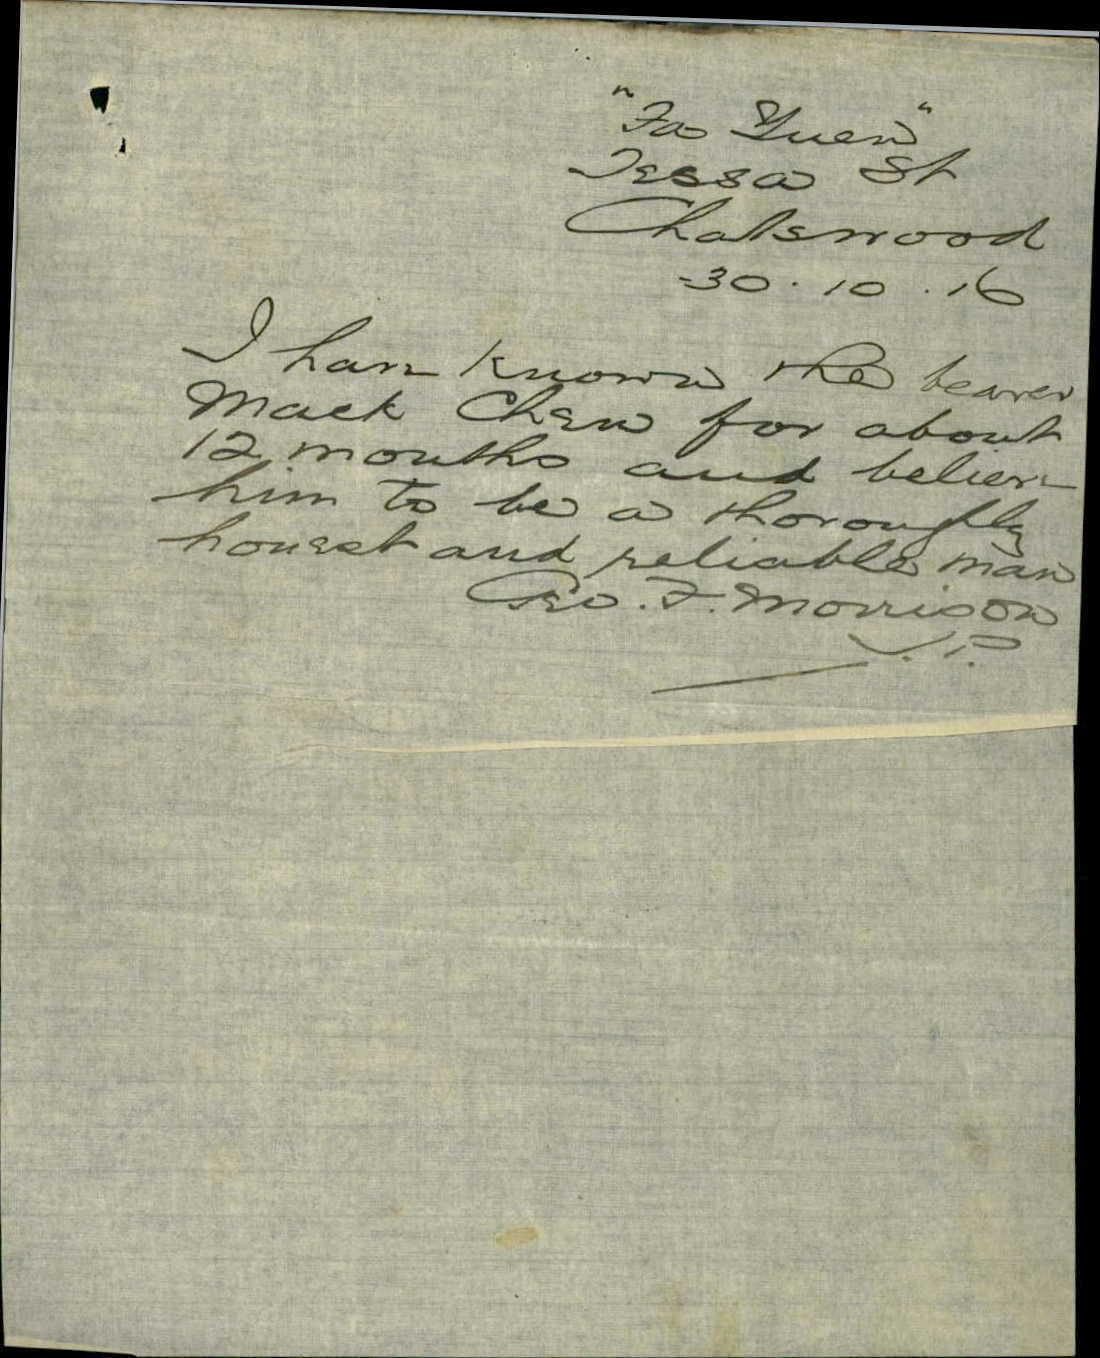 "Fa Yuen"
Tessa St
Chatswood
30.10.16
I have known the bearer
Mack Chew for about
12 months and believe
him to be a thoroughly
honest and reliable man
Geo. F. Morrison
J.P.